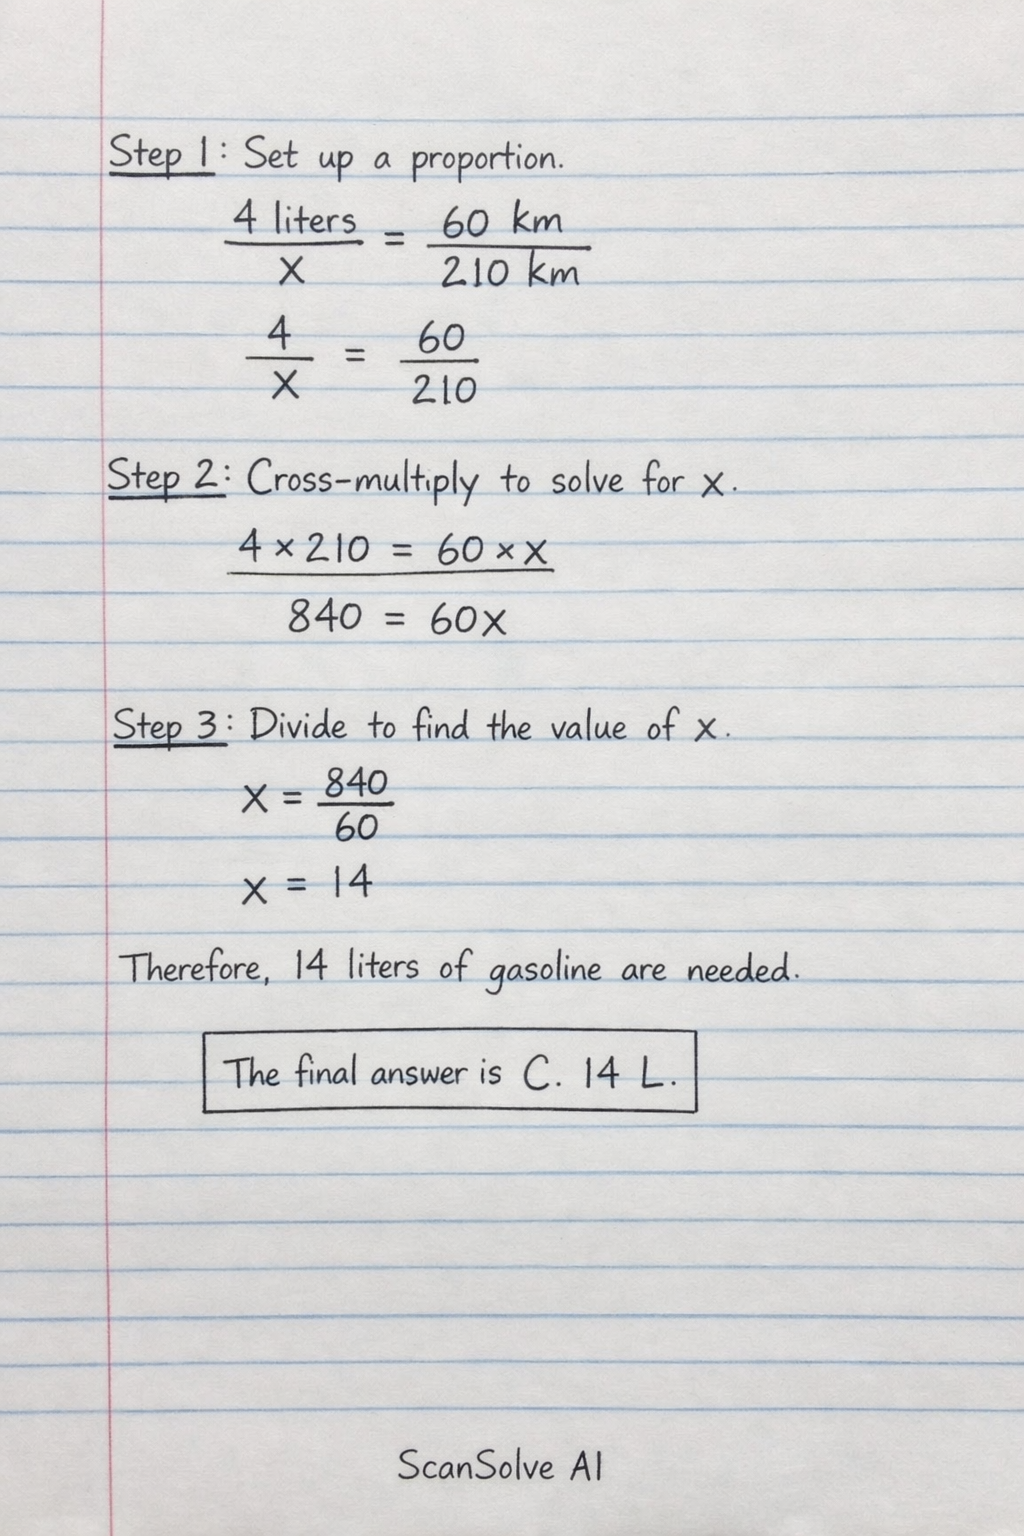 Step 1: Set up a proportion.
4 liters / x = 60 km / 210 km
4 / x = 60 / 210
Step 2: Cross-multiply to solve for x.
4 × 210 = 60 × x
840 = 60x
Step 3: Divide to find the value of x.
x = 840 / 60
x = 14
Therefore, 14 liters of gasoline are needed.
The final answer is C. 14 L.
ScanSolve AI